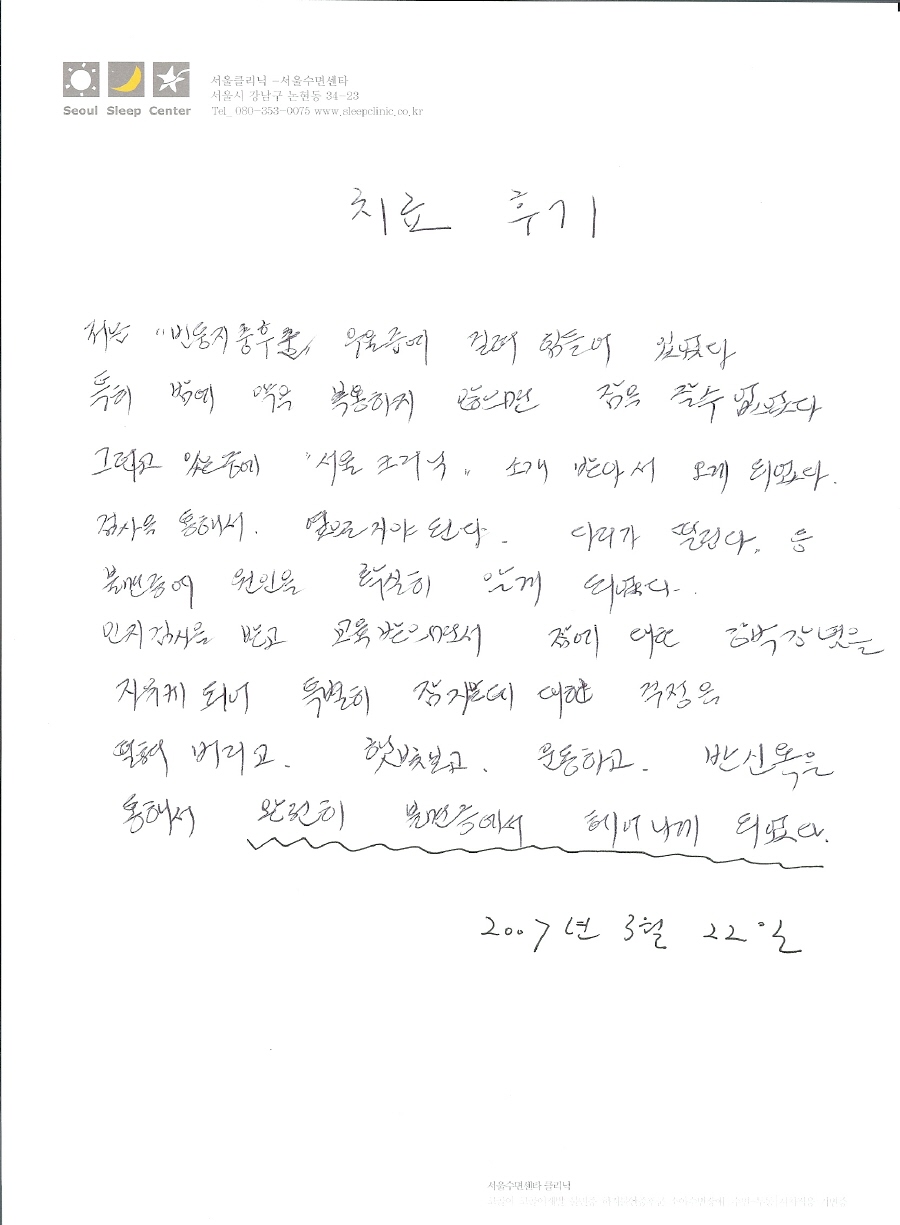 Seoul Sleep Center
서울클리닉 -서울수면센타
서울시 강남구 논현동 34-23
Tel_ 080-353-0075 www.sleepclinic.co.kr
치료 후기
처남 "빈둥지증후군" 우울증에 걸려 힘들어 있었다
특히 밤에 약을 복용하지 않으면 잠을 잘수 없었다
그러고 있는중에 "서울 크리닉" 소개 받아서 오게 되었다.
검사을 통해서. 옆으로자야 된다. 다리가 떨린다. 등
불면증에 원인을 확실히 알게 되었다.
인지검사을 받고 교육받으면서 잠에 대한 강박강념을
자유케 되어 특별히 잠자는데 대한 걱정은
떨쳐 버리고. 햇빛보고. 운동하고. 반신욕을
통해서 완전히 불면증에서 헤어나게 되었다.
2007년 3월 22일
서울수면센타 클리닉